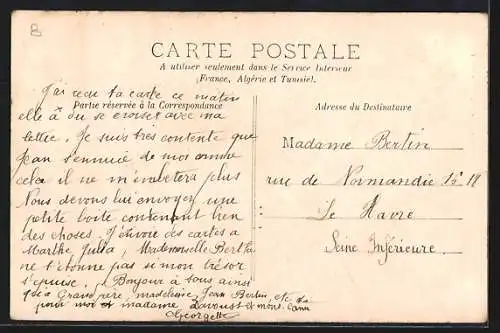 B
CARTE POSTALE
A utiliser seulement dans le Service Intérieur
(France, Algérie et Tunisie).
J'ai reçu ta carte ce matin
Partie réservée à la Correspondance
Adresse du Destinataire
elle a dû se croiser avec ma
lettre. Je suis très contente que
Jean s'ennuie de moi comme
cela il ne m'embêtera plus
Nous devons lui envoyer une
petite boite contenant bien
des choses. J'envoie des cartes à
Marthe Julia, Mademoiselle Berthe
ne s'étonne pas si mon trésor
s'épuise. Bonjour à tous ainsi
qu'à Grand père, Madeleine, Jean Bertin, etc
pour moi et madame Lavoust et mons.
Georgette
Madame Bertin
rue de Normandie No 18
Le Havre
Seine Inférieure